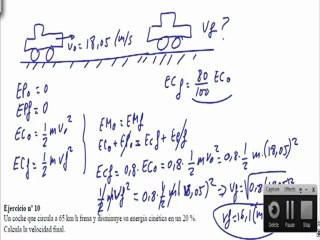 v₀ = 18,05 (m/s)
Vf?
ECf = 80/100 EC₀
EP₀ = 0
EPf = 0
EC₀ = 1/2 m v₀²
ECf = 1/2 m vf²
EM₀ = EMf
EC₀ + EP₀ = ECf + EPf
ECf = 0,8 · EC₀ = 0,8 · 1/2 m v₀² = 0,8 · 1/2 m · (18,05)²
1/2 m vf² = 0,8 · 1/2 m (18,05)² → vf = √0,8 (18,05)²
vf = 16,1 (m
Ejercicio nº 10
Un coche que circula a 65 km/h frena y disminuye su energía cinética en un 20 %.
Calcula la velocidad final.
Capture Effects
Delete
Pause